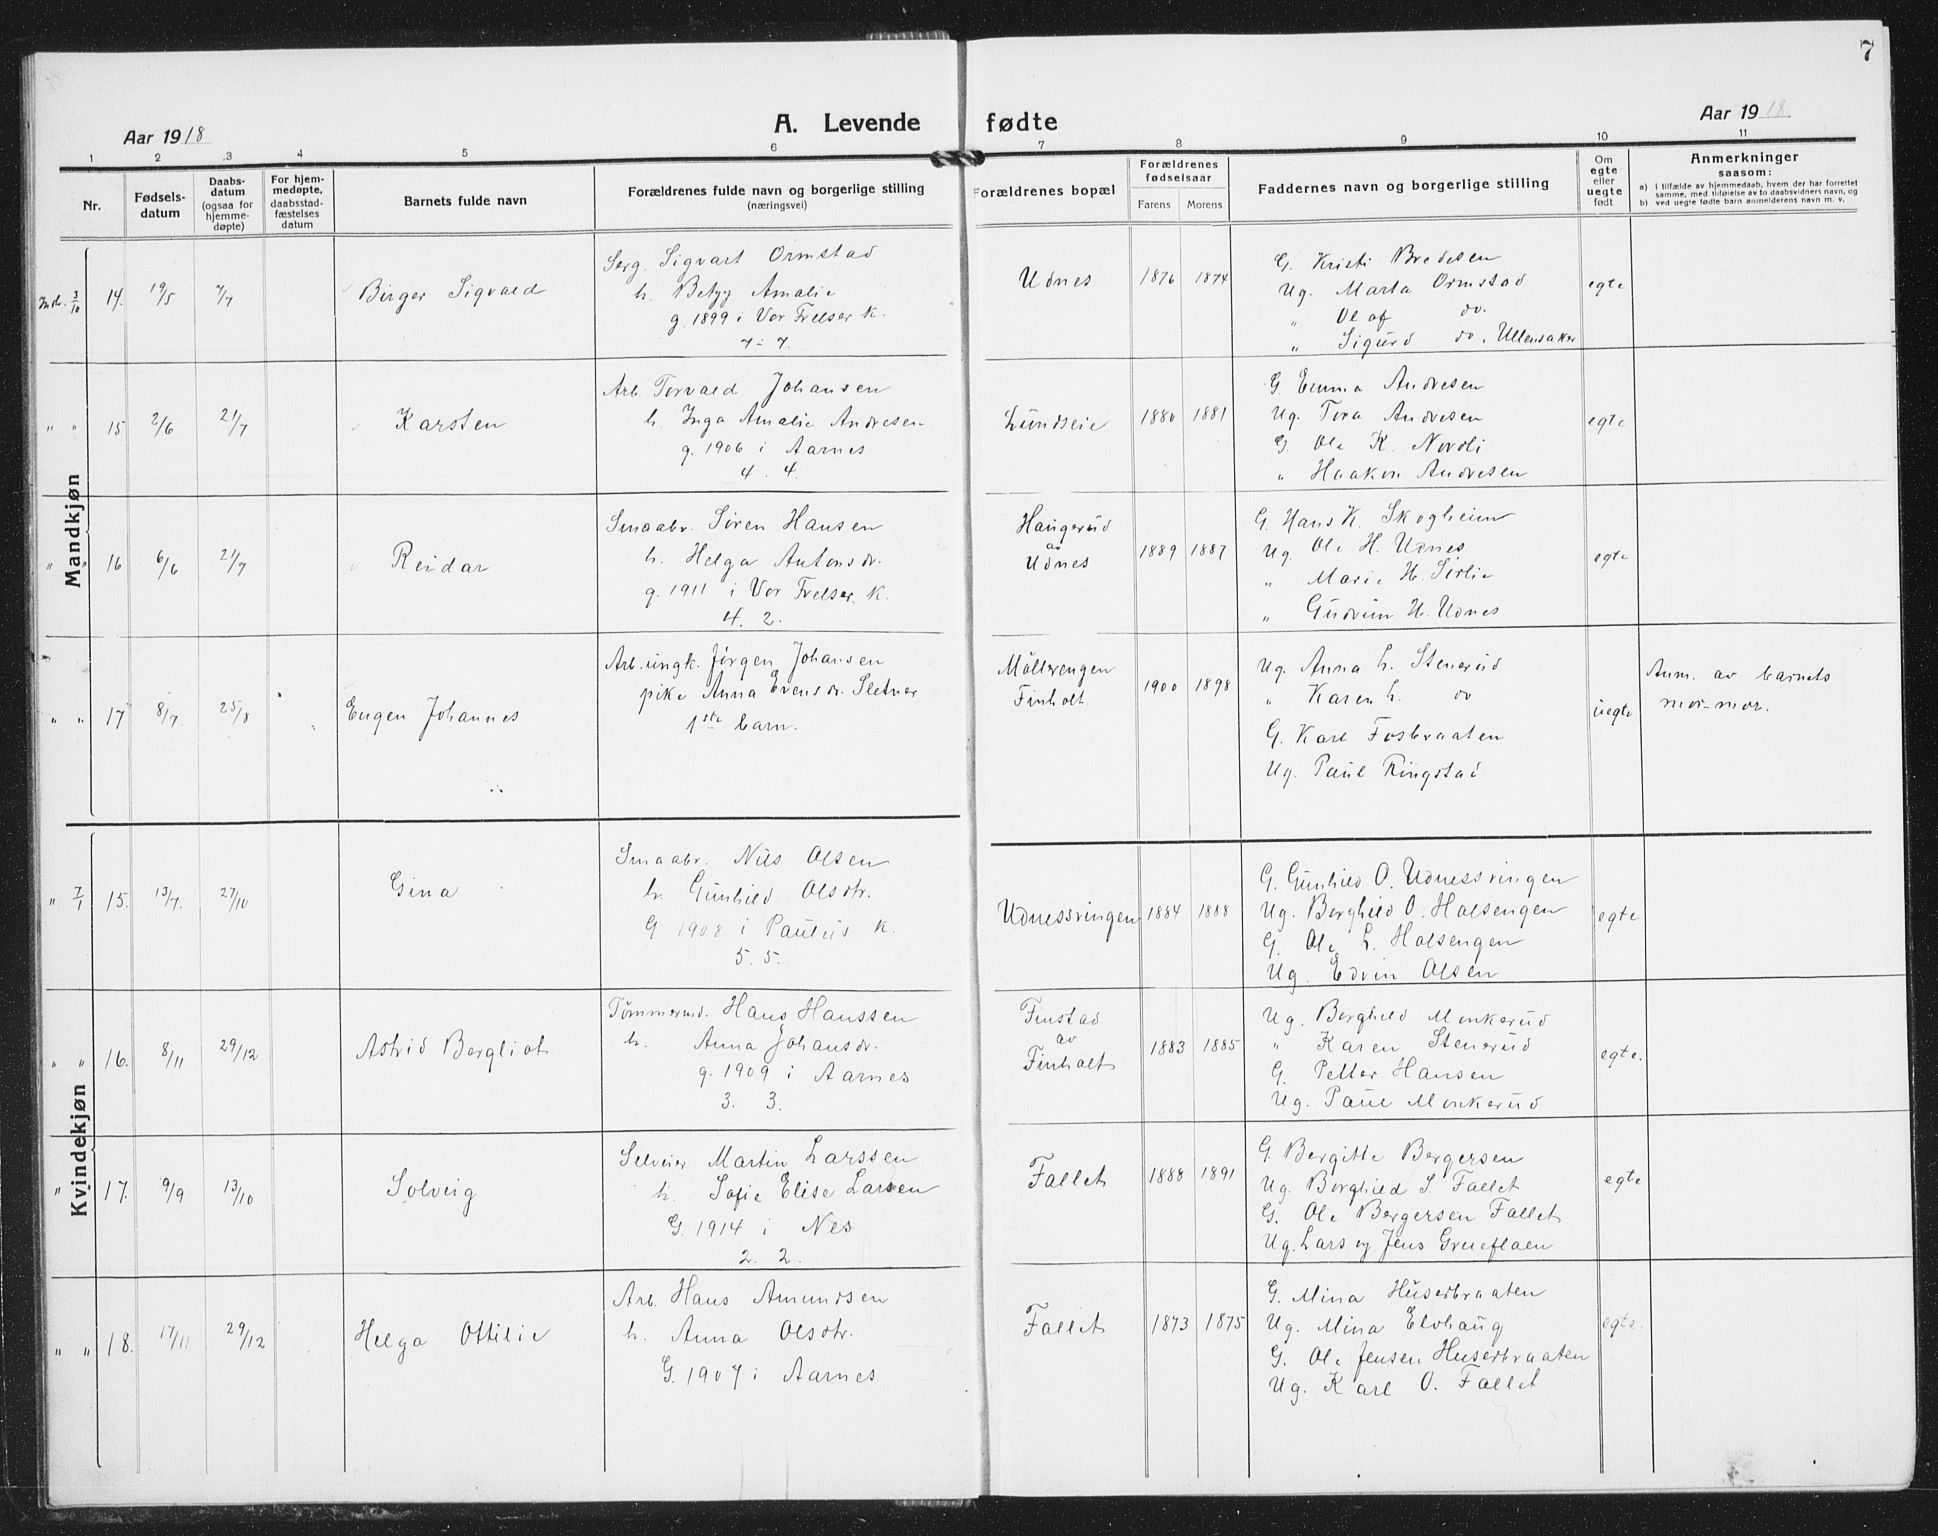 7
Aar 1918
A. Levende fødte
Aar 1918
1 2 3 4 5 6 7 8 9 10 11
Nr.
Fødsels-
datum
Daabs-
datum
(ogsaa for
hjemme-
døpte)
For hjem-
medøpte,
daabsstad-
fæstelses
datum
Barnets fulde navn
Forældrenes fulde navn og borgerlige stilling
(næringsvei)
Forældrenes bopæl
Forældrenes
fødselsaar
Farens Morens
Faddernes navn og borgerlige stilling
Om
egte
eller
uegte
født
Anmerkninger
saasom:
a) I tilfælde av hjemmedaab, hvem der har forrettet
samme, med tilføielse av to daabsvidners navn, og
b) ved uegte fødte barn anmelderens navn m. v.
Mandkjøn
Indl. 3/10 14. 19/5 7/7
Birger Sigvald
Serg. Sigvart Ormstad
h. Betzy Amalie
g. 1899 i Vor Frelser K.
7 - 7.
Udnes
1876 1874
G. Kristi Bredesen
Ug. Marta Ormstad
" Olaf do.
" Sigurd do, Ullensaker
egte
" " 15 2/6 21/7
Karsten
Arb. Torvald Johansen
h. Inga Amalie Andresen
g. 1906 i Aarnes
4. 4.
Lundseie
1880 1881
G. Emma Andresen
Ug. Tora Andresen
G. Ole K. Nordli
" Haakon Andresen
egte
" " 16 6/6 21/7
Reidar
Smaabr. Søren Hansen
h. Helga Antonsdr.
g. 1911 i Vor Frelser K.
4. 2.
Haugerud
av
Udnes
1889 1887
G. Hans K. Skogheim
Ug. Ole H. Udnes
" Marie H. Sørlie
" Gudrun H. Udnes
egte
" " 17 8/7 25/8
Eugen Johannes
Arb. ungk. Jørgen Johansen
pike Anna Evensdr. Sletner
1ste barn.
Møllerengen
Finholt.
1900 1898
Ug. Anna L. Stenerud
" Karen L. do
G. Karl Fosbraaten
Ug. Paul Ringstad
uegte
Anm. av barnets
mor-mor.
Kvindekjøn
" 7/1 15. 13/7. 27/10
Gina
Smaabr. Nils Olsen
h. Gunhild Olsdtr.
G 1908 i Paulus K.
5. 5.
Udnessvingen
1884 1888
G. Gunhild O. Udnessvingen
Ug. Borghild O. Halsengen
G. Ole L. Halsengen
Ug. Edvin Olsen
egte
" " 16. 8/11 29/12
Astrid Bergliot
Tømmermd. Hans Hanssen
h. Anna Johansdr.
g. 1909 i Aarnes
3. 3.
Finstad
av
Finholt
1883 1885
Ug. Borghild Monkerud
" Karen Stenerud
G. Petter Hansen
Ug. Paul Monkerud
egte.
" " 17. 9/9 13/10
Solveig
Selveier Martin Larssen
h. Sofie Elise Larsen
G. 1914 i Nes
2. 2.
Fallet
1888 1891
G. Bergitte Bergersen
Ug. Borghild S. Fallet
G. Ole Bergersen Fallet
Ug. Lars og Jens Grueflaen
egte
" " 18. 17/11 29/12
Helga Ottilie
Arb. Hans Amundsen
h. Anna Olsdtr.
G. 1907 i Aarnes
Fallet
1873 1875
G. Mina Huserbraaten
Ug. Mina Elvhaug
G. Ole Jensen Huserbraaten
Ug. Karl O. Fallet
egte.